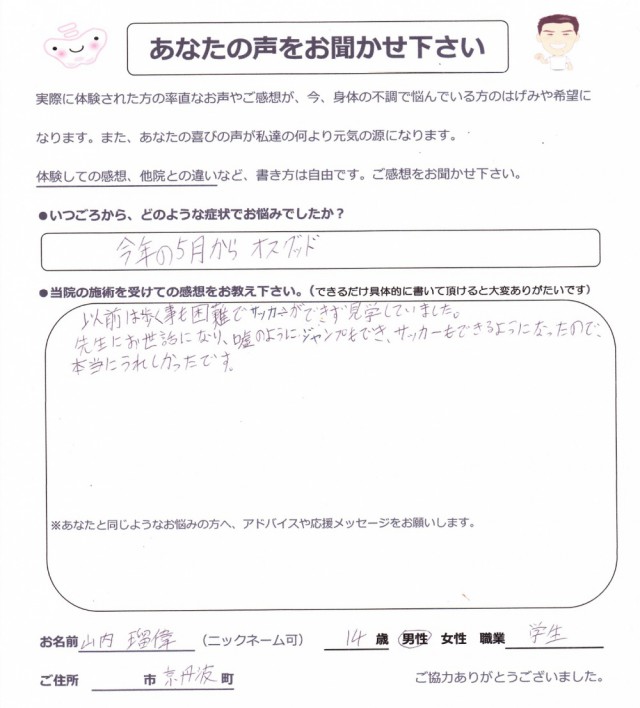 あなたの声をお聞かせ下さい
実際に体験された方の率直なお声やご感想が、今、身体の不調で悩んでいる方のはげみや希望に
なります。また、あなたの喜びの声が私達の何より元気の源になります。
体験しての感想、他院との違いなど、書き方は自由です。ご感想をお聞かせ下さい。
●いつごろから、どのような症状でお悩みでしたか？
今年の5月から オスグッド
●当院の施術を受けての感想をお教え下さい。（できるだけ具体的に書いて頂けると大変ありがたいです）
以前は歩く事も困難でサッカーができず見学していました。
先生にお世話になり、嘘のようにジャンプもでき、サッカーもできるようになったので、
本当にうれしかったです。
※あなたと同じようなお悩みの方へ、アドバイスや応援メッセージをお願いします。
お名前 山内 瑠偉 （ニックネーム可） 14 歳 男性 女性 職業 学生
ご住所 市 京丹波 町 ご協力ありがとうございました。